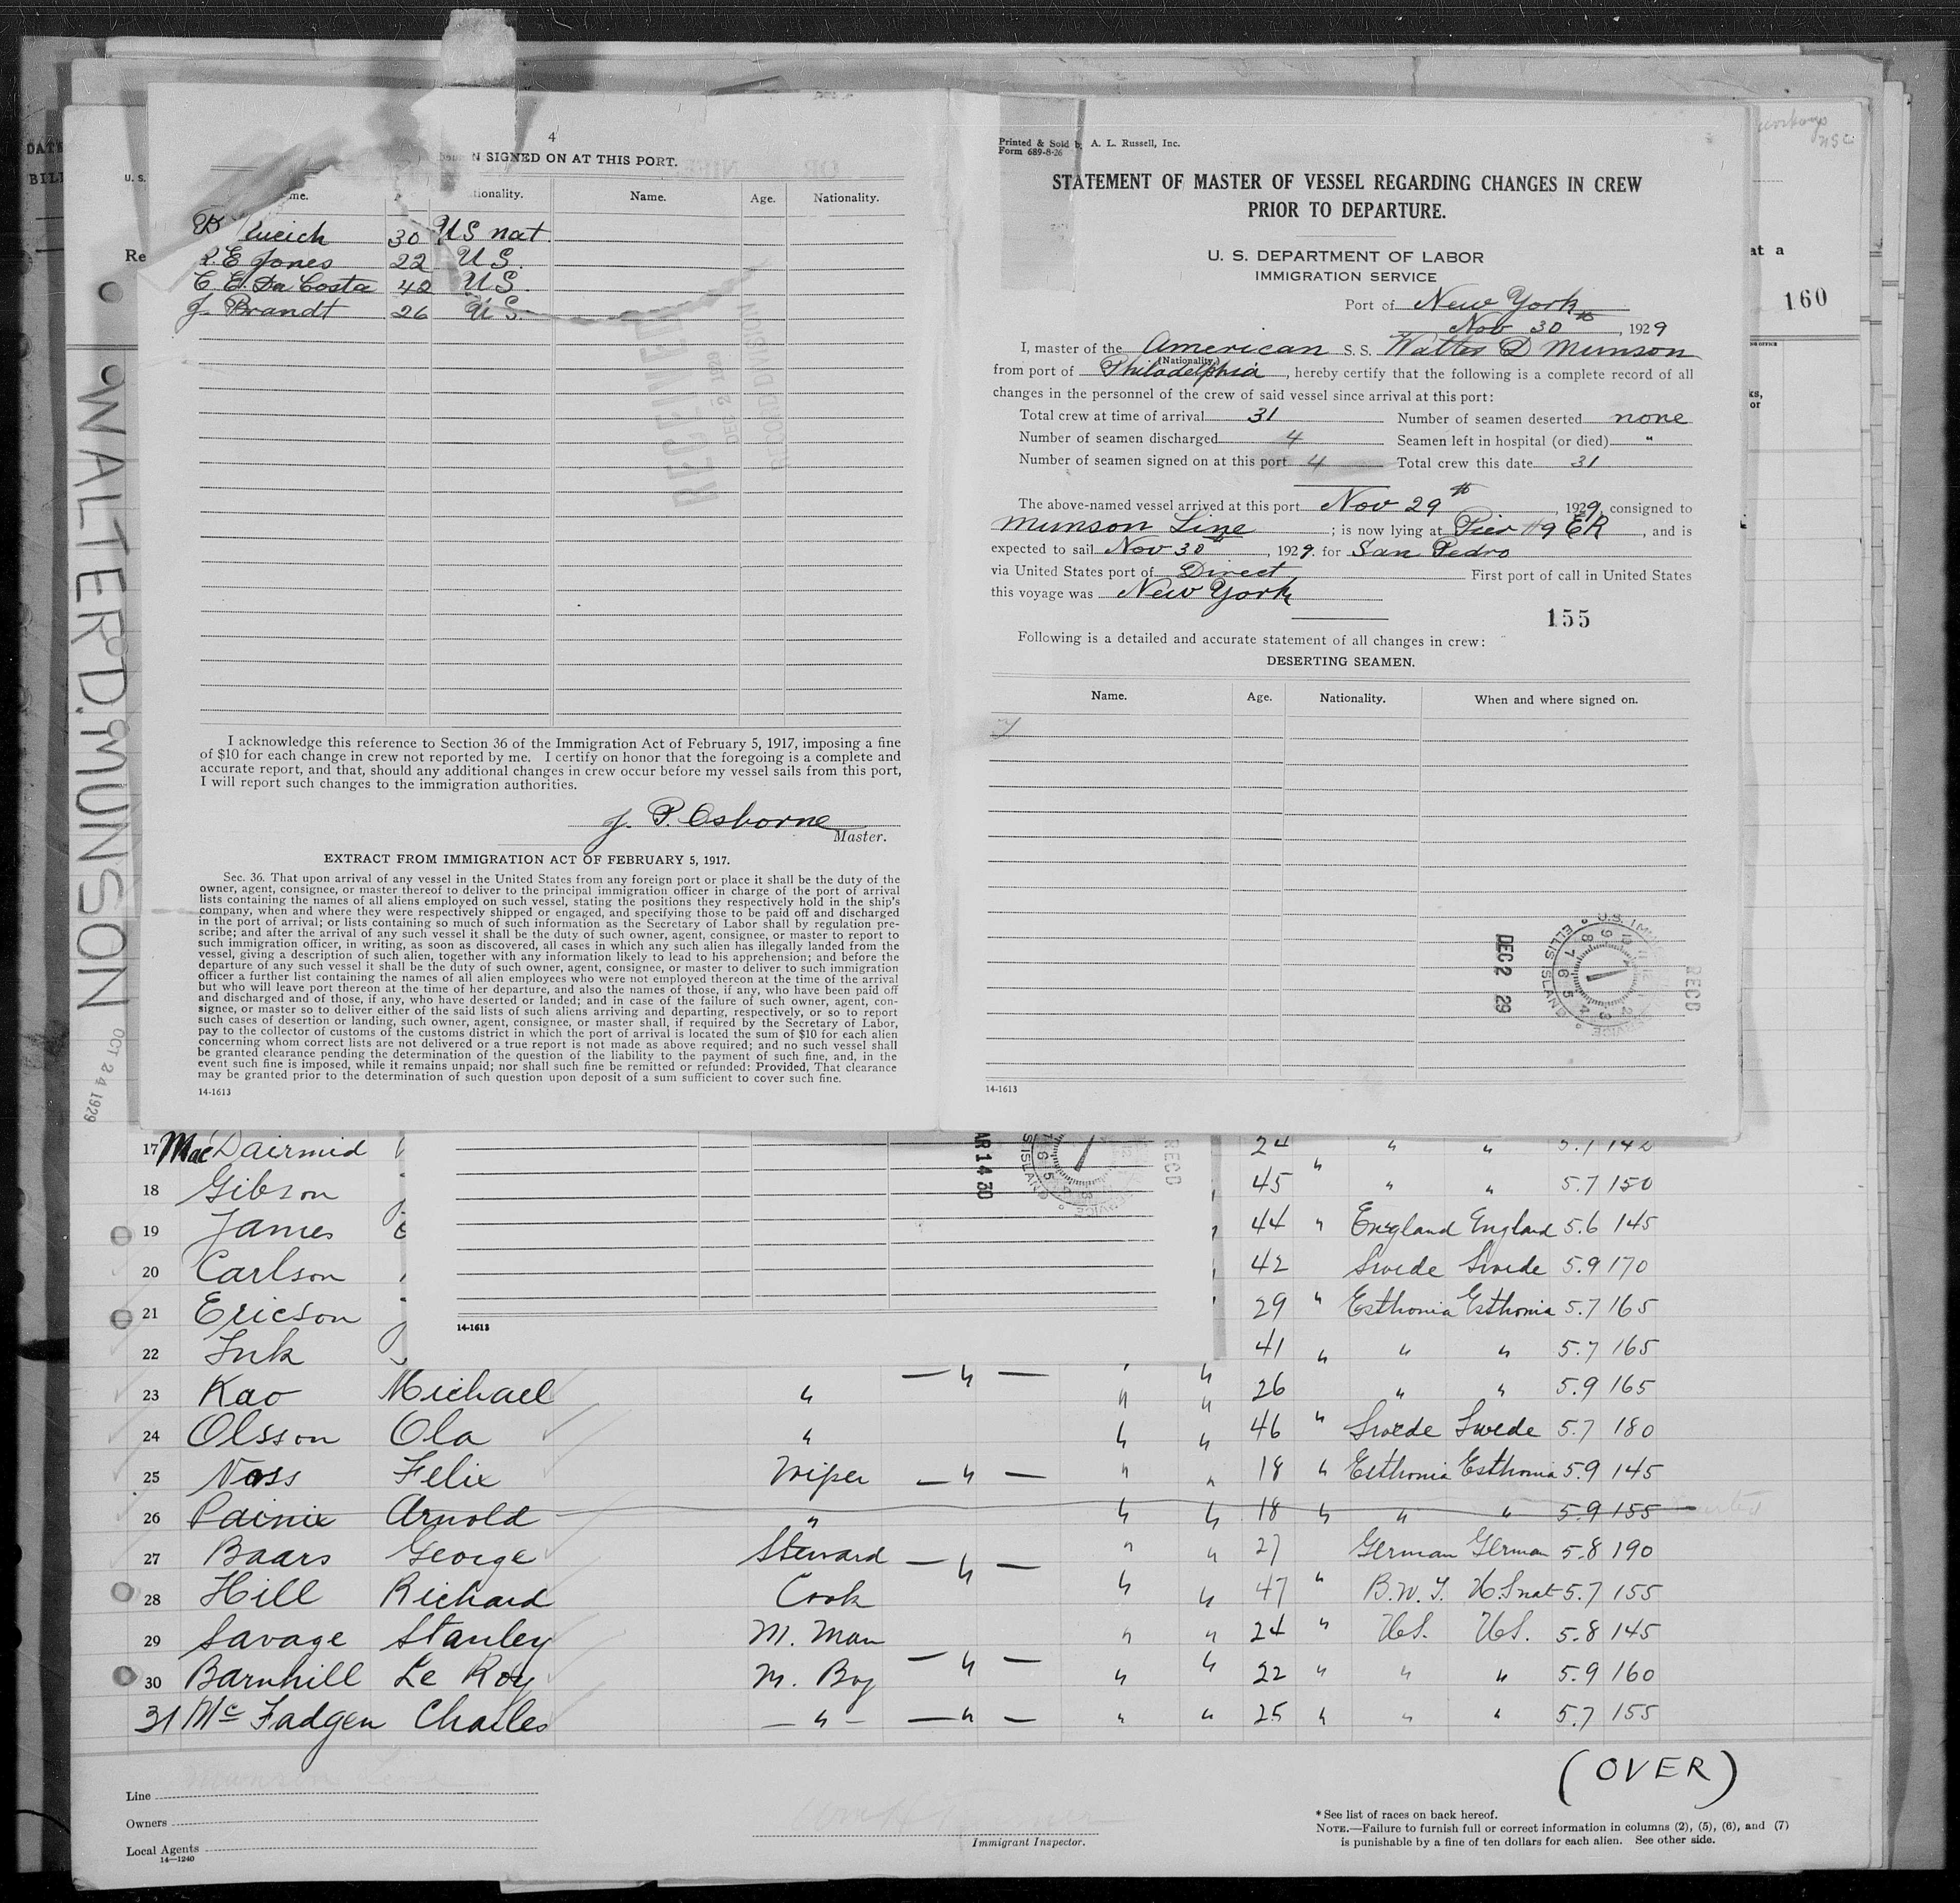 4
SIGNED ON AT THIS PORT.
me. tionality. Name. Age. Nationality.
30 US nat.
R. E Jones 22 U S.
C. E. Da Costa 42 U S.
J. Brandt 26 U S.
RECEIVED
DEC 2 1929
RECORD DIVISION
I acknowledge this reference to Section 36 of the Immigration Act of February 5, 1917, imposing a fine
of $10 for each change in crew not reported by me. I certify on honor that the foregoing is a complete and
accurate report, and that, should any additional changes in crew occur before my vessel sails from this port,
I will report such changes to the immigration authorities.
J. P. Osborne
Master.
EXTRACT FROM IMMIGRATION ACT OF FEBRUARY 5, 1917.
Sec. 36. That upon arrival of any vessel in the United States from any foreign port or place it shall be the duty of the
owner, agent, consignee, or master thereof to deliver to the principal immigration officer in charge of the port of arrival
lists containing the names of all aliens employed on such vessel, stating the positions they respectively hold in the ship's
company, when and where they were respectively shipped or engaged, and specifying those to be paid off and discharged
in the port of arrival; or lists containing so much of such information as the Secretary of Labor shall by regulation pre-
scribe; and after the arrival of any such vessel it shall be the duty of such owner, agent, consignee, or master to report to
such immigration officer, in writing, as soon as discovered, all cases in which any such alien has illegally landed from the
vessel, giving a description of such alien, together with any information likely to lead to his apprehension; and before the
departure of any such vessel it shall be the duty of such owner, agent, consignee, or master to deliver to such immigration
officer a further list containing the names of all alien employees who were not employed thereon at the time of the arrival
but who will leave port thereon at the time of her departure, and also the names of those, if any, who have been paid off
and discharged and of those, if any, who have deserted or landed; and in case of the failure of such owner, agent, con-
signee, or master so to deliver either of the said lists of such aliens arriving and departing, respectively, or so to report
such cases of desertion or landing, such owner, agent, consignee, or master shall, if required by the Secretary of Labor,
pay to the collector of customs of the customs district in which the port of arrival is located the sum of $10 for each alien
concerning whom correct lists are not delivered or a true report is not made as above required; and no such vessel shall
be granted clearance pending the determination of the question of the liability to the payment of such fine, and, in the
event such fine is imposed, while it remains unpaid; nor shall such fine be remitted or refunded: Provided, That clearance
may be granted prior to the determination of such question upon deposit of a sum sufficient to cover such fine.
14-1613
Printed & Sold by A. L. Russell, Inc.
Form 689-8-26
STATEMENT OF MASTER OF VESSEL REGARDING CHANGES IN CREW
PRIOR TO DEPARTURE.
U. S. DEPARTMENT OF LABOR
IMMIGRATION SERVICE
Port of New York
Nov 30th, 1929
I, master of the American S. S. Walter D Munson
(Nationality.)
from port of Philadelphia, hereby certify that the following is a complete record of all
changes in the personnel of the crew of said vessel since arrival at this port:
Total crew at time of arrival 31 Number of seamen deserted none
Number of seamen discharged 4 Seamen left in hospital (or died) "
Number of seamen signed on at this port 4 Total crew this date 31
The above-named vessel arrived at this port Nov 29th, 1929, consigned to
Munson Line; is now lying at Pier #9 ER, and is
expected to sail Nov 30th, 1929. for San Pedro
via United States port of Direct First port of call in United States
this voyage was New York
155
Following is a detailed and accurate statement of all changes in crew:
DESERTING SEAMEN.
Name. Age. Nationality. When and where signed on.
DEC 2 29
U.S. IMM
ELLIS ISLAND
RECD
14-1613
DATE
BILL
U. S.
Re
at a
160
ks,
or
WALTER D. MUNSON
OCT 24 1929
AR 14 30
RECD
14-1613
17 MacDairmid 24 " " 5.7 142
18 Gibson 45 " " " 5.7 150
19 James 44 " England England 5.6 145
20 Carlson 42 Swede Swede 5.9 170
21 Ericson 29 " Esthonia Esthonia 5.7 165
22 Ink 41 " " " 5.7 165
23 Kao Michael " — " — " " 26 " " 5.9 165
24 Olsson Ola " " " 46 " Swede Swede 5.7 180
25 Noss Felix Wiper — " — " " 18 " Esthonia Esthonia 5.9 145
26 Arnold " " " 18 " " " 5.9 155
27 Baars George Steward — " — " " 27 German German 5.8 190
28 Hill Richard Cook " " 47 " B.W.I. U.S nat 5.7 155
29 Savage Stanley M. Man " " 24 " U.S. U.S. 5.8 145
30 Barnhill Le Roy M. Boy — " — " " 22 " " " 5.9 160
31 McFadgen Charles — " — — " — " " 25 " " " 5.7 155
(OVER)
Line
Owners
Local Agents
14—1240
Immigrant Inspector.
* See list of races on back hereof.
NOTE.—Failure to furnish full or correct information in columns (2), (5), (6), and (7)
is punishable by a fine of ten dollars for each alien. See other side.